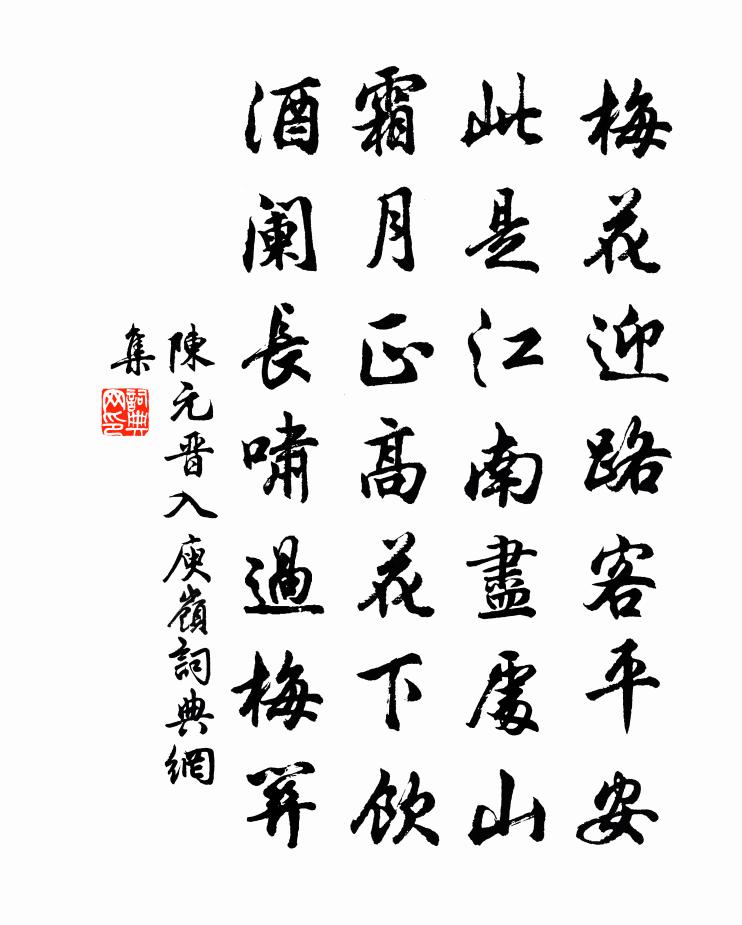 梅花迎路客平安
此是江南盡處山
霜月正高花下飲
酒闌長嘯過梅關
陳元晋入庾嶺詞典網
集
詞典
网印